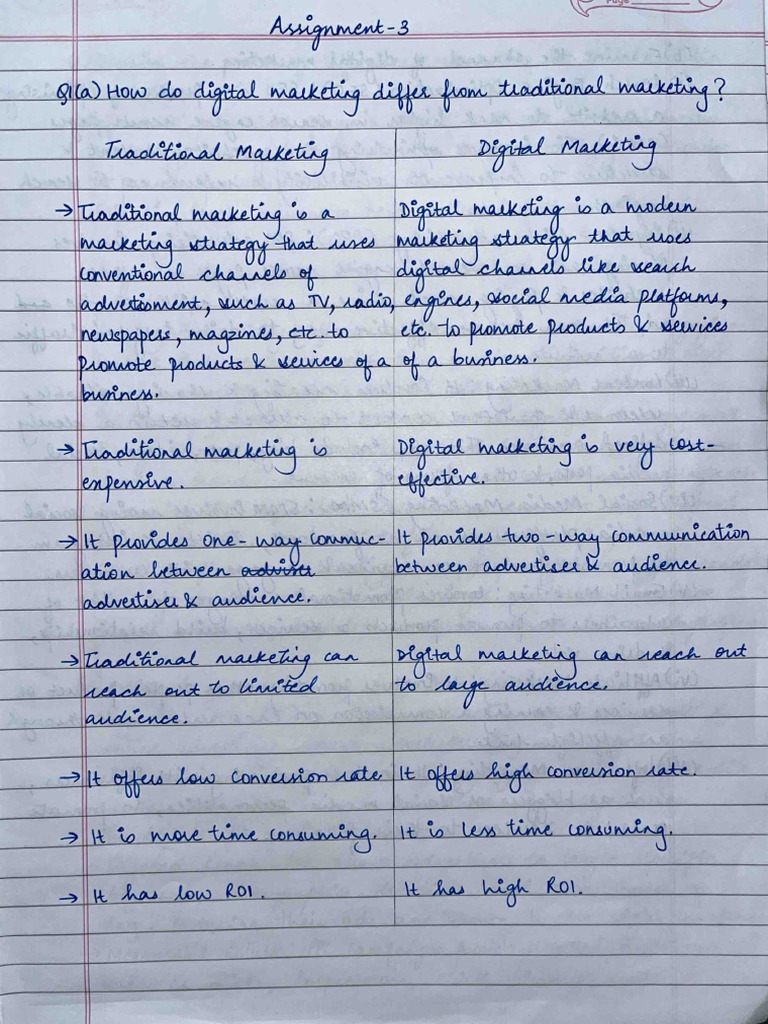 Page
Assignment-3
Q1(a) How do digital marketing differ from traditional marketing?
Traditional Marketing
Digital Marketing
→ Traditional marketing is a
marketing strategy that uses
conventional channels of
advertisment, such as TV, radio,
newspapers, magzines, etc. to
promote products & services of a
business.
Digital marketing is a modern
marketing strategy that uses
digital channels like search
engines, social media platforms,
etc. to promote products & services
of a business.
→ Traditional marketing is
expensive.
Digital marketing is very cost-
effective.
→ It provides one-way commuc-
ation between
advertiser & audience.
It provides two-way communication
between advertiser & audience.
→ Traditional marketing can
reach out to limited
audience.
Digital marketing can reach out
to large audience.
→ It offers low conversion rate
It offers high conversion rate.
→ It is more time consuming.
It is less time consuming.
→ It has low ROI.
It has high ROI.